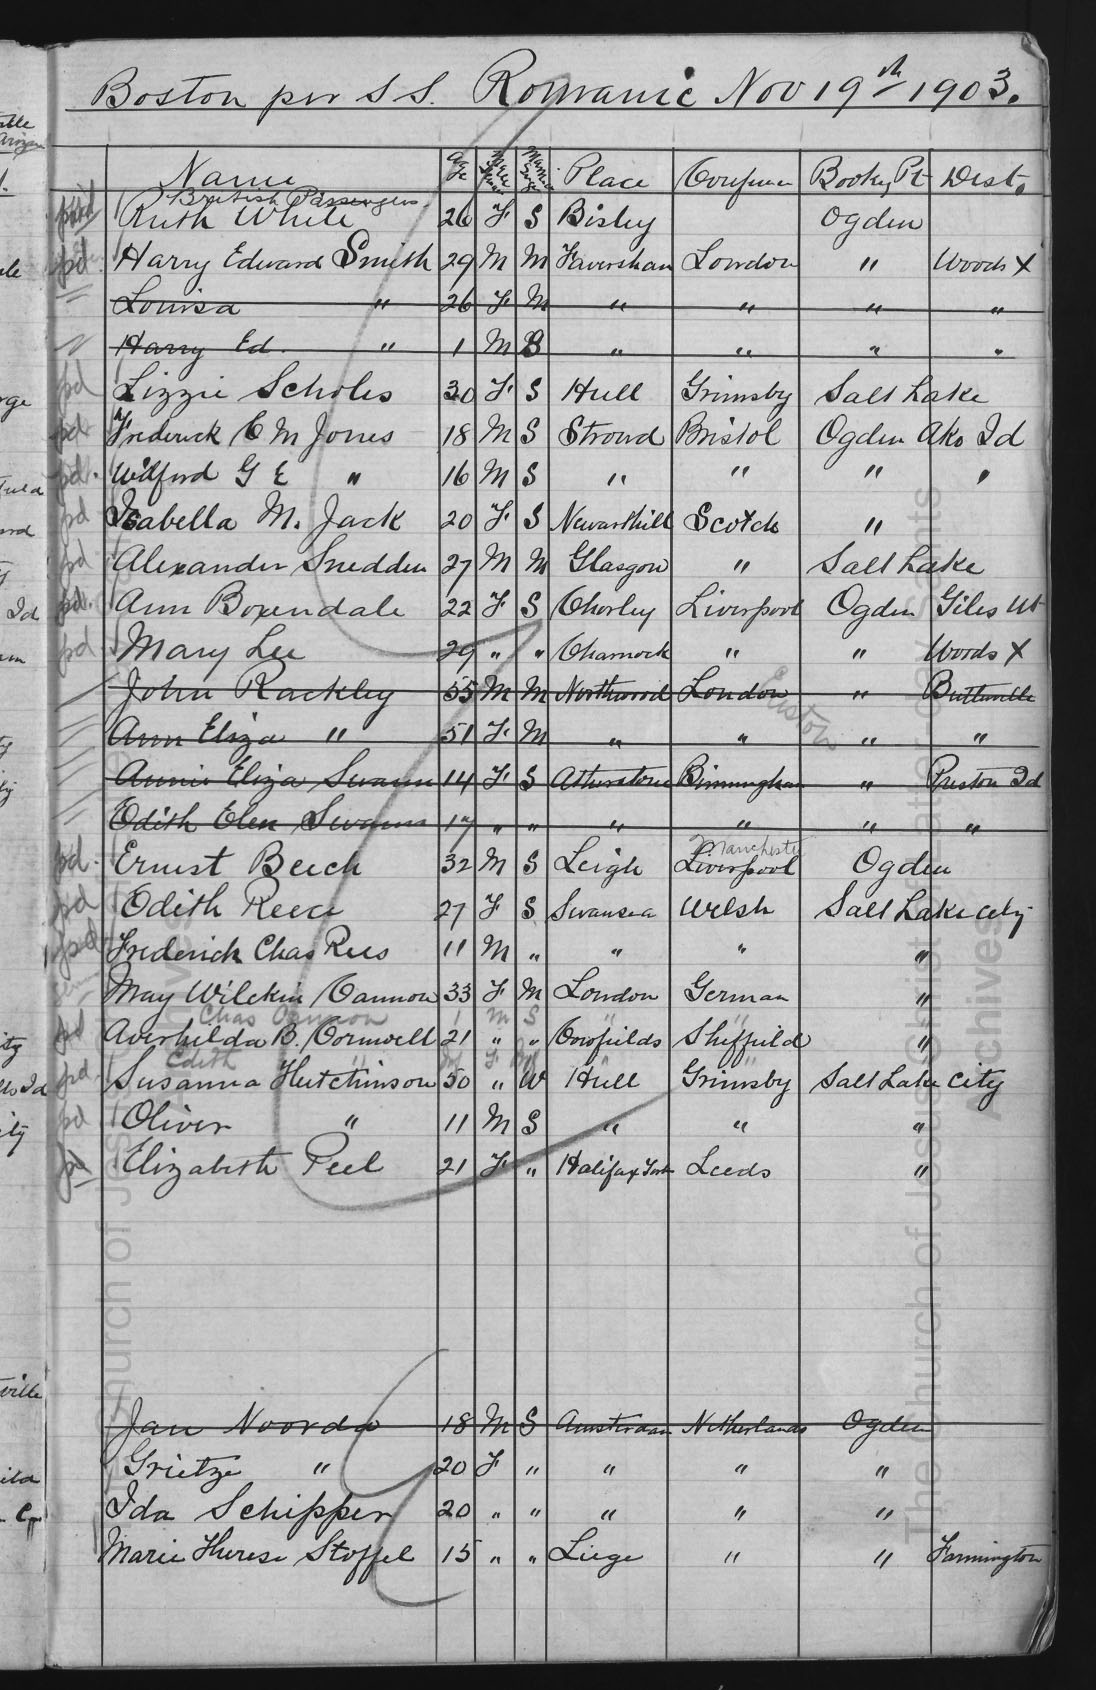 Boston per S S. Romanic Nov 19th 1903.
Name Age Place Conference Book'g Pt Dest.
British Passengers
pd Ruth White 26 F S Bisley Ogden
pd Harry Edward Smith 29 M M Faversham London " Woods X
Louisa " 26 F M " " " "
Harry Ed. " 1 M S " " " "
pd Lizzie Scholes 30 F S Hull Grimsby Salt Lake
pd Frederick C M Jones 18 M S Stroud Bristol Ogden Ako Id
pd. Wilford G E " 16 M S " " " "
pd Isabella M. Jack 20 F S Newarthill Scotch "
pd Alexander Snedden 27 M M Glasgow " Salt Lake
pd. Ann Boxendale 22 F S Chorley Liverpool Ogden Giles Ut
pd Mary Lee 29 " " Charnock " " Woods X
John Rackley 55 M M Northwood London "
Euston
Ann Eliza " 51 F M " " " "
Annie Eliza Swann 14 F S Atherstone Birmingham " Preston Id
Edith Elen Swann 17 " " " " " "
Manchester
pd. Ernest Beech 32 M S Leigh Liverpool Ogden
pd Edith Reece 27 F S Swansea Welsh Salt Lake City
pd Frederick Chas Rees 11 M " " " "
May Wilckin Cannon 33 F M London German "
Chas Cannon 1 M S " "
pd Averhilda B. Cornwell 21 " " Cowfields Sheffield "
Edith " F " "
pd. Susanna Hutchinson 50 " W Hull Grimsby Salt Lake City
pd Oliver " 11 M S " " "
pd Elizabeth Peel 21 F " Halifax York Leeds "
Jan Noorda 18 M S Amsterdam Netherlands Ogden
Grietze " 20 F " " " "
Ida Schipper 20 " " " " "
Marie Therese Stoffel 15 " " Liege " " Farmington
The Church of Jesus Christ of Latter-day Saints
Archives